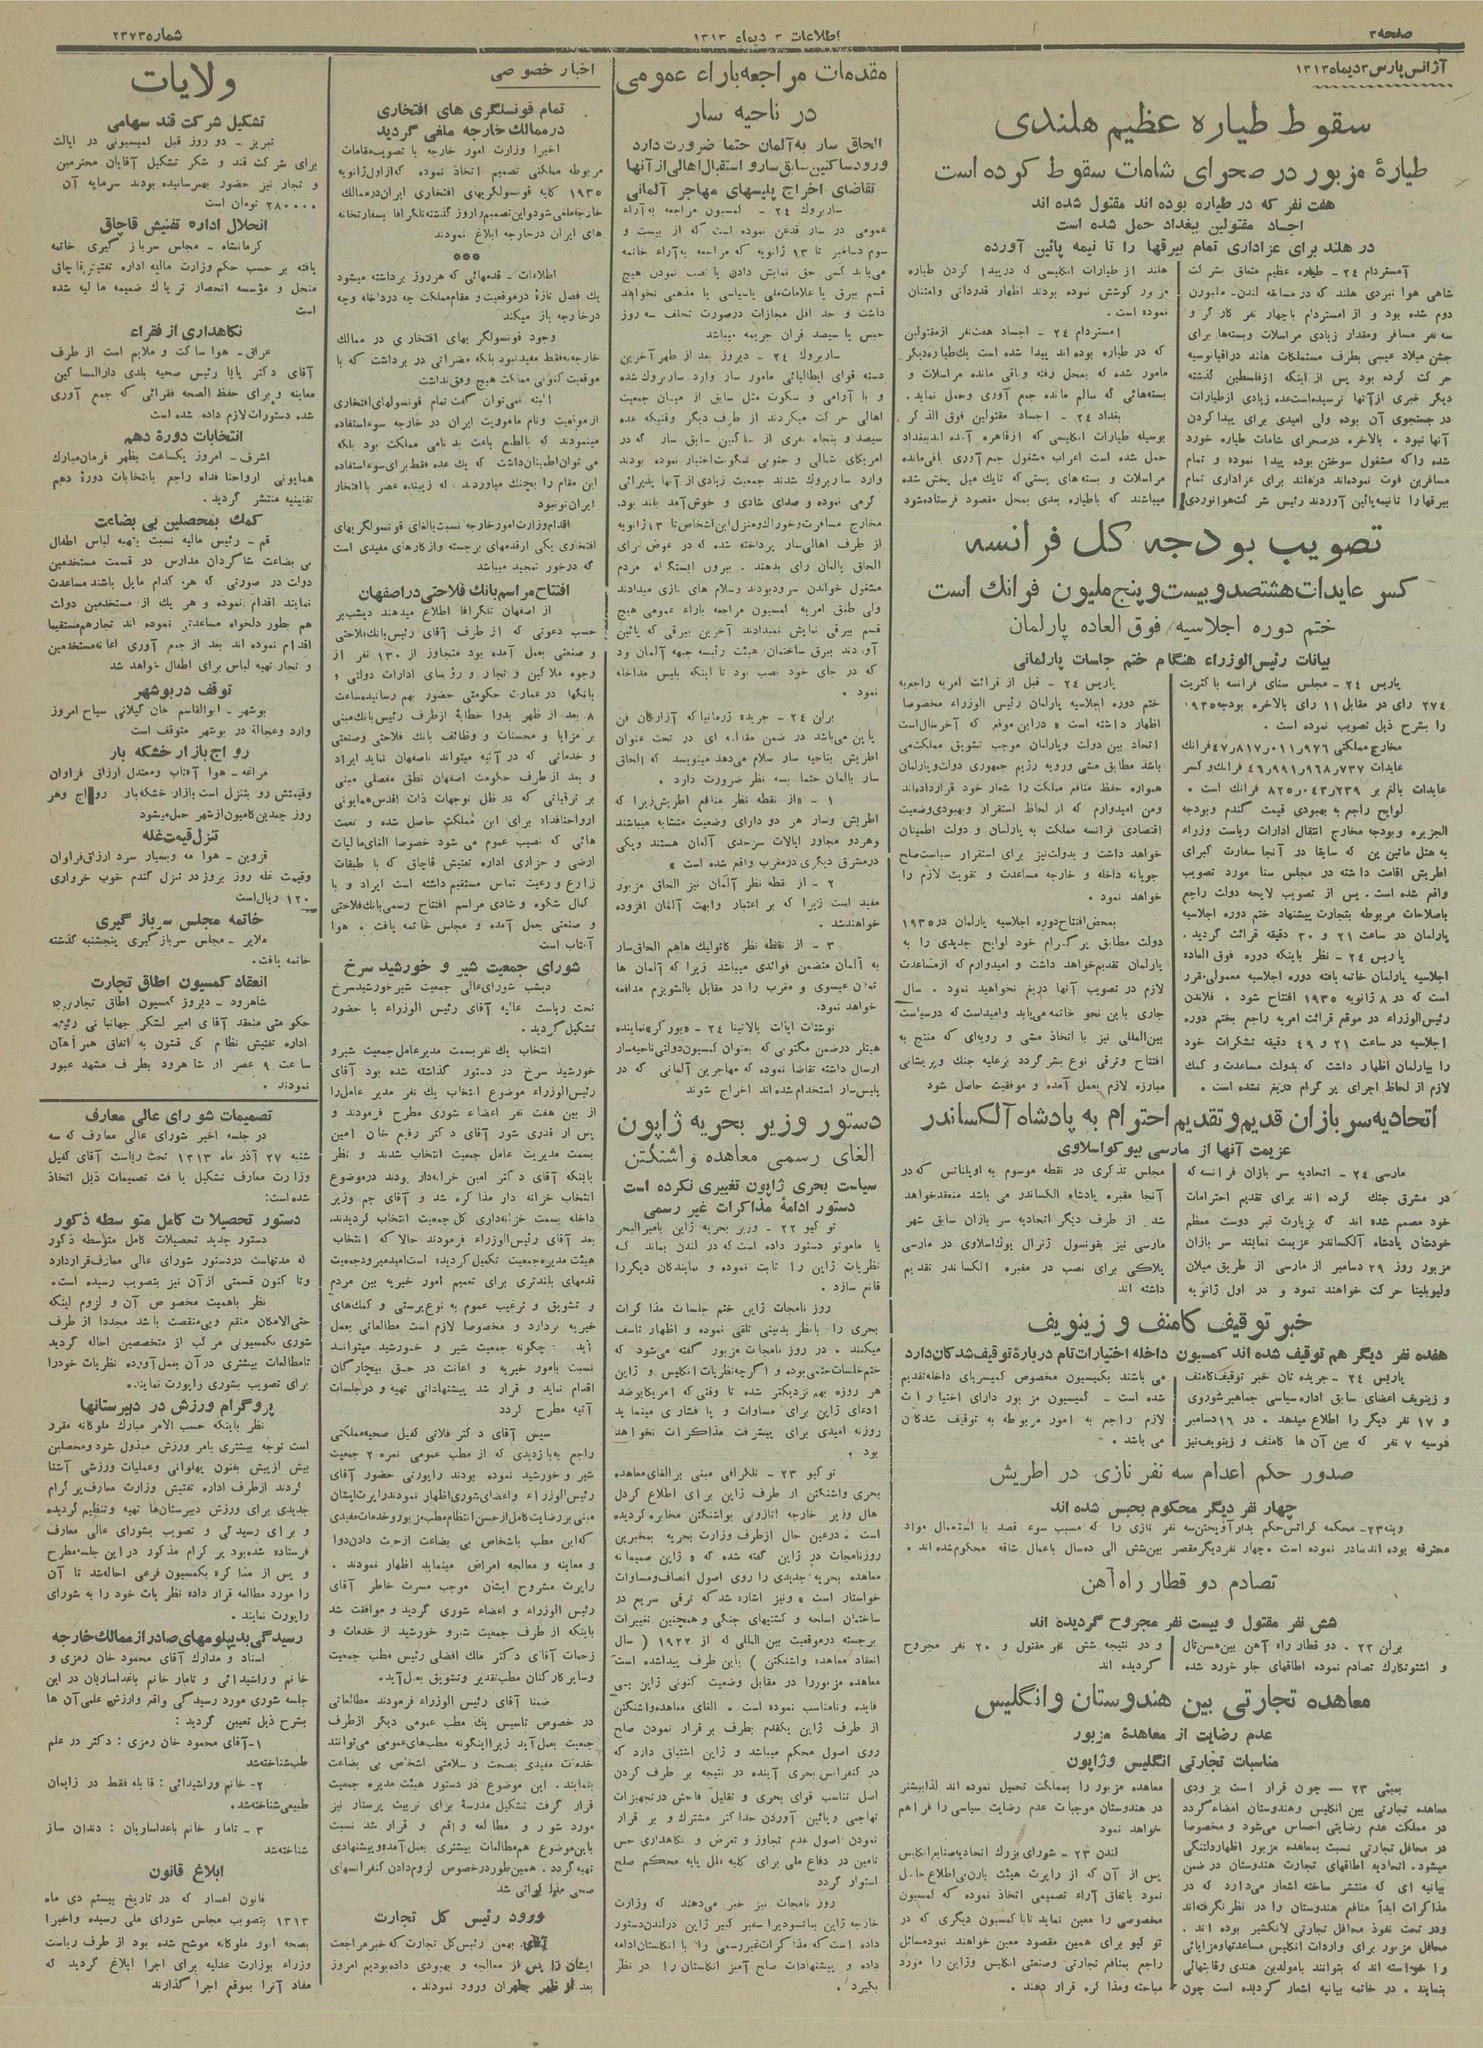 صفحه ۳
اطلاعات ۳ دیماه ۱۳۱۳
شماره ۲۳۷۳
آژانس پارس ۳ دیماه ۱۳۱۳
سقوط طیاره عظیم هلندی
طیارهٔ مزبور در صحرای شامات سقوط کرده است
هفت نفر که در طیاره بوده اند مقتول شده اند
اجساد مقتولین ببغداد حمل شده است
در هلند برای عزاداری تمام بیرقها را تا نیمه پائین آورده
آمستردام ۲۴ - طیاره عظیم متعلق بشرکت
شاهی هوا نوردی هلند که در مسابقه لندن - ملبورن
دوم شده بود و از امستردام باچهار نفر کارگر و
سه نفر مسافر ومقدار زیادی مراسلات وبسته‌ها برای
جشن میلاد عیسی بطرف مستملکات هلند دراقیانوسیه
حرکت کرده بود پس از اینکه ازفلسطین گذشته
دیگر خبری ازآنها نرسیده‌است‌عده زیادی ازطیارات
در جستجوی آن بوده ولی امیدی برای پیدا کردن
آنها نبود . بالاخره درصحرای شامات طیاره خورد
شده راکه مشغول سوختن بوده پیدا نموده و تمام
مسافرین فوت نموده‌اند درهلند برای عزاداری تمام
بیرقها را تانیمه پائین آوردند رئیس شرکت هوانوردی
هلند از طیارات انگلیسی که درپیدا کردن طیاره
مزبور کوشش نموده بودند اظهار قدردانی وامتنان
نموده است .
امستردام ۲۴ - اجساد هفت‌نفر ازمقتولین
که در طیاره بوده اند پیدا شده است یك‌طیاره‌دیگر
مامور شده که بمحل رفته وباقی مانده مراسلات و
بسته‌هائی که سالم مانده جمع آوری وحمل نماید .
بغداد ۲۴ - اجساد مقتولین فوق الذکر
بوسیله طیارات انگلیسی که ازقاهره آمده اندببغداد
حمل شده است اعراب مشغول جمع آوری باقی‌مانده
مراسلات و بسته‌های پستی‌که تایك میل پخش شده
میباشند که باطیاره بعدی بمحل مقصود فرستاده‌شود
تصویب بودجه کل فرانسه
کسر عایدات هشتصد و بیست و پنج ملیون فرانك است
ختم دوره اجلاسیه فوق العاده پارلمان
بیانات رئیس‌الوزراء هنگام ختم جلسات پارلمانی
پاریس ۲۴ - مجلس سنای فرانسه با کثریت
۲۷۴ رای در مقابل ۱۱ رای بالاخره بودجه۱۹۳۵
را بشرح ذیل تصویب نموده است .
مخارج مملکتی ۹۷۶ر۰۱۱ر۸۱۷ر۴۷ فرانك
عایدات ۷۳۷ر۹۶۸ر۹۹۱ر۴۶ فرانك‌و کسر
عایدات بالغ بر ۲۳۹ر۰۴۳ر۸۲۵ فرانك است .
لوایح راجع به بهبودی قیمت گندم وبودجه
الجزیره وبودجه مخارج انتقال ادارات ریاست وزراء
به هتل ماتین ین که سابقا در آنجا سفارت کبرای
اطریش اقامت داشته در مجلس سنا مورد تصویب
واقع شده است. پس از تصویب لایحه دولت راجع
باصلاحات مربوطه بتجارت پیشنهاد ختم دوره اجلاسیه
پارلمان در ساعت ۲۱ و ۳۰ دقیقه قرائت گردید.
پاریس ۲۴ - نظر باینکه دوره فوق العاده
اجلاسیه پارلمان خاتمه یافته دوره اجلاسیه معمولی‌مقرر
است که در ۸ ژانویه ۱۹۳۵ افتتاح شود . فلاندن
رئیس‌الوزراء در موقع قرائت امریه راجع بختم دوره
اجلاسیه در ساعت ۲۱ و ۴۹ دقیقه تشکرات خود
را بپارلمان اظهار داشت که بدولت مساعدت و کمك
لازم از لحاظ اجرای پر گرام دریغ نشده است .
پاریس ۲۴ - قبل از قرائت امریه راجع‌به
ختم دوره اجلاسیه پارلمان رئیس الوزراء مخصوصا
اظهار داشته است « دراین موقع که آخرسال‌است
اتحاد بین دولت وپارلمان موجب تشویق مملکت‌می
باشد مطابق مشی ورویه رژیم جمهوری دولت‌وپارلمان
همواره حفظ منافع مملکت را شعار خود قرارداده‌اند
ومن امیدوارم که از لحاظ استقرار وبهبودی‌وضعیت
اقتصادی فرانسه مملکت به پارلمان و دولت اطمینان
خواهد داشت و بدولت‌نیز برای استقرار سیاست‌صلح
جویانه داخله و خارجه مساعدت و تقویت لازم را
خواهد نمود .
بمحض‌افتتاح‌دوره اجلاسیه پارلمان در۱۹۳۵
دولت مطابق پر گرام خود لوایح جدیدی را به
پارلمان تقدیم‌خواهد داشت و امیدوارم که ازمساعدت
لازم در تصویب آنها دریغ نخواهید نمود . سال
جاری باین نحو خاتمه می‌یابد وامیداست‌که درسیاست
بین‌المللی نیز با اتخاذ مشی و رویه‌ای که منتج به
افتتاح وترقی نوع بشر گردد برعلیه جنك وپریشانی
مبارزه لازم بعمل آمده و موفقیت حاصل شود
اتحادیه سربازان قدیم و تقدیم احترام به پادشاه آلکساندر
عزیمت آنها از مارسی بیوگواسلاوی
مارسی ۲۴ - اتحادیه سر بازان فرانسه که
در مشرق جنك کرده اند برای تقدیم احترامات
خود مصمم شده اند که بزیارت قبر دوست معظم
خودشان پادشاه آلکساندر عزیمت نمایند سر بازان
مزبور روز ۲۹ دسامبر از مارسی از طریق میلان
ولیوبلینا حرکت خواهند نمود و در اول ژانویه
مجلس تذکری در نقطه موسوم به اوپلناتس که‌در
آنجا مقبره پادشاه الکساندر می باشد منعقدخواهد
شد. از طرف دیگر اتحادیه سر بازان سابق شهر
مارسی نیز بقونسول ژنرال یوك‌اسلاوی در مارسی
پلاکی برای نصب در مقبره الکساندر تقدیم
داشته اند
خبر توقیف کامنف و زینویف
هفده نفر دیگر هم توقیف شده اند کمسیون داخله اختیارات تام دربارهٔ توقیف شدگان دارد
پاریس ۲۴ - جریده تان خبر توقیف‌کامنف
و زینویف اعضای سابق اداره سیاسی جماهیرشوروی
و ۱۷ نفر دیگر را اطلاع میدهد . در ۱۶ دسامبر
۷ نفر که بین آن ها کامنف و زینویف‌نیز
می باشند بکمیسیون مخصوص کمیسریای داخله‌تقدیم
شده است - کمیسیون مزبور دارای اختیارات
لازم راجع به امور مربوطه به توقیف شدگان
می باشد .
صدور حکم اعدام سه نفر نازی در اطریش
چهار نفر دیگر محکوم بحبس شده اند
وینه۲۳- محکمه کراتس‌حکم بدارآویختن‌سه نفر نازی را که مسبب سوء قصد با استعمال مواد
محترقه بوده اندصادر نموده است - چهار نفردیگرمقصر بین‌شش الی ده‌سال باعمال شاقه محکوم‌شده اند .
تصادم دو قطار راه‌آهن
شش نفر مقتول و بیست نفر مجروح گردیده اند
برلن ۲۳ . دو قطار راه آهن بین
و اشتوتکارك تصادم نموده اطاقهای جلو خورد شده
و در نتیجه شش نفر مقتول و ۲۰ نفر مجروح
گردیده اند
معاهده تجارتی بین هندوستان و انگلیس
عدم رضایت از معاهدهٔ مزبور
مناسبات تجارتی انگلیس و ژاپون
بمبئی ۲۳ — چون قرار است بزودی
معاهده تجارتی بین انگلیس وهندوستان امضاء گردد
در مملکت عدم رضایتی احساس می‌شود و مخصوصا
در محافل تجارتی نسبت بمعاهده مزبور اظهاردلتنگی
میشود. اتحادیه اطاقهای تجارت هندوستان در ضمن
بیانیه ای که منتشر ساخته اشعار می‌دارد که در
مذاکرات ابداً منافع هندوستان را در نظرنگرفته‌اند
ودر تحت نفوذ محافل تجارتی لانکشیر بوده اند .
محافل مزبور برای واردات انگلیس مساعدتهاومزایائی
را خواسته اند که بتوانند بامولدین هندی رقابتهائی
بنمایند . در خاتمه بیانیه اشعار گردیده است چون
معاهده مزبور را بمملکت تحمیل نموده اند لذابیشتر
در هندوستان موجبات عدم رضایت سیاسی را فراهم
خواهد نمود
لندن ۲۳ - شورای بزرك اتحادیه‌صنایع‌انگلیس
پس از آن که از راپرت هیئت بارن‌بی‌اطلاع حاصل
نمود باتفاق آراء تصمیمی اتخاذ نموده که کمسیون
مخصوصی را معین نماید تاباکمسیون دیگری که در
توکیو برای همین مقصود معین خواهند نمودمسائل
راجع بمنافع تجارتی وصنعتی انگلیس وژاپن را مورد
مباحثه ومذاکره قرار دهند .
مقدمات مراجعه باراء عمومی
در ناحیه سار
الحاق سار به آلمان حتما ضرورت دارد
ورود ساکنین سابق سار و استقبال اهالی از آنها
تقاضای اخراج پلیسهای مهاجر آلمانی
ساربروك ۲۴ - کمسیون مراجعه به‌آراء
عمومی در سار قدغن نموده است که از بیست و
سوم دسامبر تا ۱۳ ژانویه که مراجعه به‌آراء خاتمه
می‌یابد کسی حق نمایش دادن یا نصب نمودن هیچ
قسم بیرق یا علامات‌ملی یاسیاسی یا مذهبی نخواهد
داشت و حد اقل مجازات درصورت تخلف سه روز
حبس یا سیصد فران جریمه میباشد
ساربروك ۲۴ - دیروز بعد از ظهر آخرین
دسته قوای ایطالیائی مامور سار وارد ساربروك شده
و با آرامی و سکوت مثل سابق از میان جمعیت
اهالی حرکت میکردند از طرف دیگر وقتیکه عده
سیصد و پنجاه نفری از ساکنین سابق سار که در
امریکای شمالی و جنوبی سکونت‌اختیار نموده بودند
وارد ساربروك شدند جمعیت زیادی از آنها پذیرائی
گرمی نموده و صدای شادی و خوش‌آمد بلند بود.
مخارج مسافرت‌وخوراك‌ومنزل‌این‌اشخاص‌تا ۱۳ژانویه
از طرف اهالی‌سار پرداخته شده که در عوض‌برای
الحاق بالمان رای بدهند . بیرون ایستگاه مردم
مشغول خواندن سرودبودند وسلام های نازی میدادند
ولی طبق امریه کمسیون مراجعه باراء عمومی هیچ
قسم بیرقی نمایش نمیدادند آخرین بیرقی که پائین
آوردند بیرق ساختمان هیئت رئیسه جبهه آلمان بود
که در جای خود نصب بود تا اینکه پلیس مداخله
نمود .
برلن ۲۴ - جریده ژرمانیاکه آزارگان فن
پاپن می‌باشد در ضمن مقاله ای در تحت عنوان
اطریش بناحیه سار سلام می‌دهد مینویسد که الحاق
سار بالمان حتما بسه نظر ضرورت دارد .
۱ - «از نقطه نظر منافع اطریش‌زیرا که
اطریش وسار هر دو دارای وضعیت متشابه میباشند
وهردو مجاور ایالات سرحدی آلمان هستند ویکی
درمشرق دیگری درمغرب واقع شده است »
۲ - از نقطه نظر آلمان نیز الحاق مزبور
مفید است زیرا که بر اعتبار وابهت آلمان افزوده
خواهدشد .
۳ - از نقطه نظر کاتولیك هاهم الحاق‌سار
به آلمان متضمن فوائدی میباشد زیرا که آلمان ها
تمدن عیسوی و مغرب را در مقابل بالشویزم مدافعه
خواهد نمود.
نوشتات ایالت پالاتینا ۲۴ - «بورکر»نماینده
هیتلر درضمن مکتوبی که بعنوان کمسیون‌دولتی ناحیه‌سار
ارسال داشته تقاضا نموده که مهاجرین آلمانی که در
پلیس‌سار استخدام شده اند اخراج شوند
دستور وزیر بحریه ژاپون
الغای رسمی معاهده واشنگتن
سیاست بحری ژاپون تغییری نکرده است
دستور ادامهٔ مذاکرات غیر رسمی
توکیو ۲۲ - وزیر بحریه ژاپن بامیرالبحر
یا ماموتو دستور داده است‌که در لندن بماند که
نظریات ژاپن را ثابت نموده و نمایندگان دیگررا
قانع سازد .
روز نامجات ژاپن ختم جلسات مذاکرات
بحری را بانظر بدبینی تلقی نموده و اظهار تاسف
میکنند . در روز نامجات مزبور گفته می‌شود که
ختم‌جلسات‌حتمی‌بوده و اگرچه‌نظریات انگلیس و ژاپن
هر روزه بهم نزدیکتر شده تا وقتی که امریکابرضد
ادعای ژاپن برای مساوات و پا فشاری مینماید
روزنه امیدی برای پیشرفت مذاکرات نخواهد
بود .
توکیو ۲۳ - تلگرافی مبنی بر الغای‌معاهده
بحری واشنگتن از طرف ژاپن برای اطلاع کردل
هال وزیر خارجه اتازونی بواشنگتن مخابره گردیده
است . درعین حال ازطرف وزارت بحریه بمخبرین
روزنامجات در ژاپن گفته شده که « ژاپن صمیمانه
معاهده بحریه جدیدی را روی اصول انصاف‌ومساوات
خواستار است » ونیز اشاره شد که ترقی سریع در
ساختمان اسلحه و کشتیهای جنگی و همچنین تغییرات
برجسته درموقعیت بین المللی که از ۱۹۲۲ ( سال
انعقاد معاهده واشنگتن ) باین طرف پیداشده است
معاهده مزبوررا در مقابل وضعیت کنونی ژاپن بی
فایده ونامناسب نموده است . الغای معاهده‌واشنگتن
از طرف ژاپن یکقدم بطرف بر قرار نمودن صلح
روی اصول محکم میباشد و ژاپن اشتیاق دارد که
در کنفرانس بحری آینده در نتیجه بر طرف کردن
اصل تناسب قوای بحری و تقلیل فاحش درتجهیزات
تهاجمی وپائین آوردن حداکثر مشترك و بر قرار
نمودن اصول عدم تجاوز و تعرض و نگاهداری حس
تامین در دفاع ملی برای کلیه ملل پایه محکم صلح
استوار گردد
روز نامجات نیز خبر می‌دهند که وزارت
خارجه ژاپن بماتسودیرا سفیر کبیر ژاپن درلندن‌دستور
داده است‌که مذاکرات‌غیررسمی را با انگلستان‌ادامه
داده و پیشنهادات صلح آمیز انگلستان را در نظر
بگیرد .
اخبار خصوصی
تمام قونسلگری های افتخاری
در ممالك خارجه ملغی گردید
اخیرا وزارت امور خارجه با تصویب‌مقامات
مربوطه مملکتی تصمیم اتخاذ نموده که‌ازاول‌ژانویه
۱۹۳۵ کلیه قونسولگریهای افتخاری ایران‌درممالك
خارجه‌ملغی شودواین‌تصمیم‌راروز گذشته‌تلگرافا بسفارتخانه
های ایران درخارجه ابلاغ نمودند
***
اطلاعات - قدمهائی که هرروز برداشته میشود
یك فصل تازهٔ درموقعیت و مقام‌مملکت چه درداخله وچه
درخارجه باز میکند
وجود قونسولگر بهای افتخاری در ممالك
خارجه‌نه‌فقط مفیدنبود بلکه مضراتی در برداشت که با
موقعیت کنونی مملکت هیچ وفق‌نداشت
البته نمی‌توان گفت تمام قونسولهای‌افتخاری
ازموقعیت ونام ماموریت ایران در خارجه سوءاستفاده
مینمودند که بالطبع باعث بدنامی مملکت بود بلکه
می توان‌اطمینان‌داشت که یك عده فقط‌برای‌سوءاستفاده
این مقام را بچنك میاوردند. که زیبنده عصر باافتخار
ایران‌نونبود
اقدام‌وزارت‌امورخارجه نسبت‌بالغای قونسولگریهای
افتخاری یکی ازقدمهای برجسته وازکارهای مفیدی است
که درخور تمجید میباشد
افتتاح مراسم بانك فلاحتی در اصفهان
از اصفهان تلگرافا اطلاع میدهند دیشب‌بر
حسب دعوتی که از طرف آقای رئیس‌بانك‌فلاحتی
و صنعتی بعمل آمده بود متجاوز از ۱۳۰ نفر از
وجوه ملاکین و تجار و رؤسای ادارات دولتی و
بانکها درعمارت حکومتی حضور بهم رسانیده‌ساعت
۸ بعد از ظهر بدوا خطابهٔ ازطرف رئیس‌بانك‌مبنی
بر مزایا و محسنات و وظائف بانك فلاحتی وصنعتی
و خدماتی که در آتیه میتواند باصفهان نماید ایراد
و بعد از طرف حکومت اصفهان نطق مفصلی مبنی
بر ترقیاتی که در ظل توجهات ذات اقدس‌همایونی
ارواحنافداه برای این مملکت حاصل شده و نعمت
هائی که نصیب عموم می شود خصوصا الغای‌مالیات
ارضی و اداره تفتیش قاچاق که با طبقات
زارع و رعیت تماس مستقیم‌داشته است ایراد و با
کمال شکوه و شادی مراسم افتتاح رسمی بانك‌فلاحتی
و صنعتی بعمل آمده و مجلس خاتمه یافت . هوا
آفتاب است
شورای جمعیت شیر و خورشید سرخ
دیشب شورای‌عالی جمعیت شیر خورشیدسرخ
تحت ریاست عالیه آقای رئیس الوزراء با حضور
تشکیل گردید .
انتخاب یك نفربسمت مدیرعامل‌جمعیت شیرو
خورشید سرخ در دستور گذاشته شده بود آقای
رئیس‌الوزراء موضوع انتخاب یك نفر مدیر عامل‌را
از بین هفت نفر اعضاء شوری مطرح فرمودند و
پس از قدری شور آقای دکتر رفیع خان امین
بسمت مدیریت عامل جمعیت انتخاب شدند و نظر
باینکه آقای دکتر امین خزانه‌دار بودند درموضوع
انتخاب خزانه دار مذاکره شد و آقای جم وزیر
داخله بسمت خزانه‌داری کل جمعیت انتخاب گردیدند.
بعد آقای رئیس‌الوزراء فرمودند حالا که انتخاب
هیئت مدیره‌جمعیت تکمیل گردیده است‌امیدمیرودجمعیت
قدمهای بلندتری برای تعمیم امور خیریه بین مردم
و تشویق و ترغیب عموم به نوع‌پرستی و کمك‌های
خیریه بردارد و مخصوصا لازم است مطالعاتی بعمل
آید که چگونه جمعیت شیر و خورشید میتواند
نسبت بامور خیریه و اعانت در حق بیچارگان
اقدام نماید و قرار شد پیشنهاداتی تهیه و درجلسات
آتیه مطرح گردد
سپس آقای دکتر فلاتی کفیل صحیه‌مملکتی
راجع به‌بازدیدی که از مطب عمومی نمره ۲ جمعیت
شیر و خورشید نموده بودند راپورتی حضور آقای
رئیس‌الوزراء واعضای‌شوری‌اظهار نمودندراپرت‌ایشان
مبنی بررضایت‌کامل‌ازحسن‌انتظام‌مطب‌مزبورو خدمات‌مفیدی
که‌این مطب باشخاص بی بضاعت ازحیث دادن‌دوا
و معاینه و معالجه امراض مینماید اظهار نمودند .
راپرت مشروح ایشان موجب مسرت خاطر آقای
رئیس الوزراء و اعضاء شوری گردید و موافقت شد
باینکه از طرف جمعیت شیرو خورشید از خدمات و
زحمات آقای دکتر ملك افضلی رئیس مطب جمعیت
وسایر کارکنان مطب‌تقدیر وتشویق بعمل‌آید.
ضمنا آقای رئیس الوزراء فرمودند مطالعاتی
در خصوص تاسیس یك مطب عمومی دیگر ازطرف
جمعیت بعمل‌آید زیرااینگونه مطب‌های‌عمومی می‌توانند
خدمات مفیدی بصحت و سلامتی اشخاص بی بضاعت
بنمایند. این موضوع در دستور هیئت مدیره جمعیت
قرار گرفت تشکیل مدرسهٔ برای تربیت پرستار نیز
مورد شور و مطالعه واقع و قرار شد نسبت
باین‌موضوع هم‌مطالعات بیشتری بعمل آمده‌وپیشنهادی
تهیه‌گردد . همین‌طوردرخصوص لزوم‌دادن کنفرانسهای
صحی مذاکراتی شد
ورود رئیس کل تجارت
آقای بهمن رئیس‌کل تجارت که خبرمراجعت
ایشان را پس از معالجه و بهبودی داده‌بودیم امروز
بعد از ظهر بطهران ورود نمودند .
ولایات
تشکیل شرکت قند سهامی
تبریز - دو روز قبل کمیسیونی در ایالت
برای شرکت قند و شکر تشکیل آقایان محترمین
و تجار نیز حضور بهمرسانیده بودند سرمایه آن
۲۸۰۰۰۰ تومان است
انحلال اداره تفتیش قاچاق
کرمانشاه - مجلس سرباز گیری خاتمه
یافته بر حسب حکم وزارت مالیه اداره تفتیش‌قاچاق
منحل و مؤسسه انحصار تریاك ضمیمه مالیه شده
است
نگاهداری از فقراء
عراق- هوا ساکت و ملایم است از طرف
آقای دکتر پاپا رئیس صحیه بلدی دارالمساکین
معاینه وبرای حفظ الصحه فقرائی که جمع آوری
شده دستورات لازم داده شده است
انتخابات دورهٔ دهم
اشرف - امروز یکساعت بظهر فرمان‌مبارك
همایونی ارواحنا فداه راجع بانتخابات دورهٔ دهم
تقنینیه منتشر گردید.
کمك بمحصلین بی بضاعت
قم - رئیس مالیه نسبت بتهیه لباس اطفال
بی بضاعت شاگردان مدارس در قسمت مستخدمین
دولت در صورتی که هر کدام مایل باشند مساعدت
نمایند اقدام نموده و هر یك از مستخدمین دولت
هم بطور دلخواه مساعدتی نموده اند تجارهم‌مستقیما
اقدام نموده اند بعد از جمع آوری اعانه‌مستخدمین
و تجار تهیه لباس برای اطفال خواهد شد
توقف در بوشهر
بوشهر - ابوالقاسم خان گیلانی سیاح امروز
وارد وعجالة در بوشهر متوقف است
رواج بازار خشکه بار
مراغه - هوا آفتاب ومعتدل ارزاق فراوان
وقیمتش رو بتنزل است‌بازار خشکه‌بار رواج وهر
روز چندین‌کامیون‌ازشهر حمل‌میشود
تنزل قیمت غله
قزوین - هوا مه وبسیار سرد ارزاق‌فراوان
وقیمت غله روز بروز در تنزل گندم خوب خرواری
۱۲۰ ریال‌است
خاتمه مجلس سرباز گیری
ملایر - مجلس سرباز گیری پنجشنبه گذشته
خاتمه یافت .
انعقاد کمسیون اطاق تجارت
شاهرود - دیروز کمسیون اطاق تجارت‌در
حکومتی منعقد آقای امیر لشکر جهانبانی رئیس
اداره تفتیش نظام کل قشون به اتفاق همراهان
ساعت ۹ عصر از شاهرود بطرف مشهد عبور
نمودند .
تصمیمات شورای عالی معارف
در جلسه اخیر شورای عالی معارف که سه
شنبه ۲۷ آذر ماه ۱۳۱۳ تحت ریاست آقای کفیل
وزارت معارف تشکیل یافت تصمیمات ذیل اتخاذ
شده است:
دستور تحصیلات کامل متوسطه ذکور
دستور جدید تحصیلات کامل متوسطه ذکور
که مدتهاست دردستور شورای عالی معارف‌قراردارد
وتا کنون قسمتی ازآن نیز بتصویب رسیده است.
نظر باهمیت مخصوص آن و لزوم اینکه
حتی‌الامکان منقح وبی‌منقصت باشد مجددا از طرف
شوری بکمسیونی مرکب از متخصصین احاله گردید
تامطالعات بیشتری درآن بعمل‌آورده نظریات خودرا
برای تصویب بشوری راپورت نمایند.
پروگرام ورزش در دبیرستانها
نظر باینکه حسب الامر مبارك ملوکانه مقرر
است توجه بیشتری بامر ورزش مبذول شود ومحصلین
بیش ازپیش بفنون پهلوانی وعملیات ورزشی آشنا
گردند ازطرف اداره تفتیش وزارت معارف‌پرگرام
جدیدی برای ورزش دبیرستان‌ها تهیه وتنظیم‌گردیده
و برای رسیدگی و تصویب بشورای عالی معارف
فرستاده شده‌بود پرگرام مذکور در این جلسه‌مطرح
و پس از مذاکره بکمسیون فرعی احاله‌شد تا آن
را مورد مطالعه قرار داده نظریات خود را به شورای
راپورت نمایند .
رسیدگی بدیپلومهای صادر از ممالك خارجه
اسناد و مدارك آقای محمود خان رمزی و
خانم وراشیدائی و تامار خانم باغداساریان در این
جلسه شوری مورد رسیدگی واقع وارزش علمی‌آن ها
بشرح ذیل تعیین گردید :
۱-آقای محمود خان رمزی : دکتر در علم
طب‌شناخته‌شد
۲- خانم وراشیدائی : قابله فقط در زایمان
طبیعی‌شناخته‌شد.
۳ - تامار خانم باغداساریان : دندان ساز
شناخته‌شد
ابلاغ قانون
قانون اعسار که در تاریخ بیستم دی ماه
۱۳۱۳ بتصویب مجلس شورای ملی رسیده واخیرا
بصحه انور ملوکانه موشح شده بود از طرف ریاست
وزراء بوزارت عدلیه برای اجرا ابلاغ گردید که
مفاد آنرا بموقع اجرا گذارند